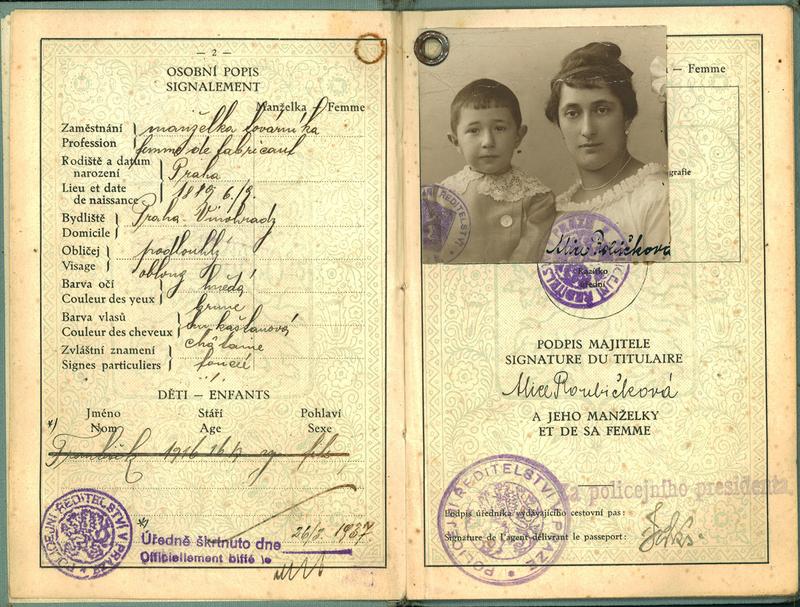 — 2 —
OSOBNÍ POPIS
SIGNALEMENT
Manželka – Femme
Zaměstnání manželka továrníka
Profession femme de fabricant
Rodiště a datum narození Praha
Lieu et date de naissance
Bydliště Praha - Vinohrady
Domicile
Obličej podlouhlý
Visage oblong
Barva očí hnědá
Couleur des yeux brune
Barva vlasů kaštanová
Couleur des cheveux châtaine
Zvláštní znamení
Signes particuliers
DĚTI – ENFANTS
Jméno Stáří Pohlaví
Nom Age Sexe
František fils
POLICEJNÍ ŘEDITELSTVÍ V PRAZE
Úředně škrtnuto dne 1937
Officiellement biffé le
– Femme
grafie
Alice Roubíčková
Razítko
úřední
PODPIS MAJITELE
SIGNATURE DU TITULAIRE
Alice Roubíčková
A JEHO MANŽELKY
ET DE SA FEMME
POLICEJNÍ ŘEDITELSTVÍ V PRAZE
Za policejního presidenta
Podpis úředníka vydávajícího cestovní pas:
Signature de l'agent délivrant le passeport: